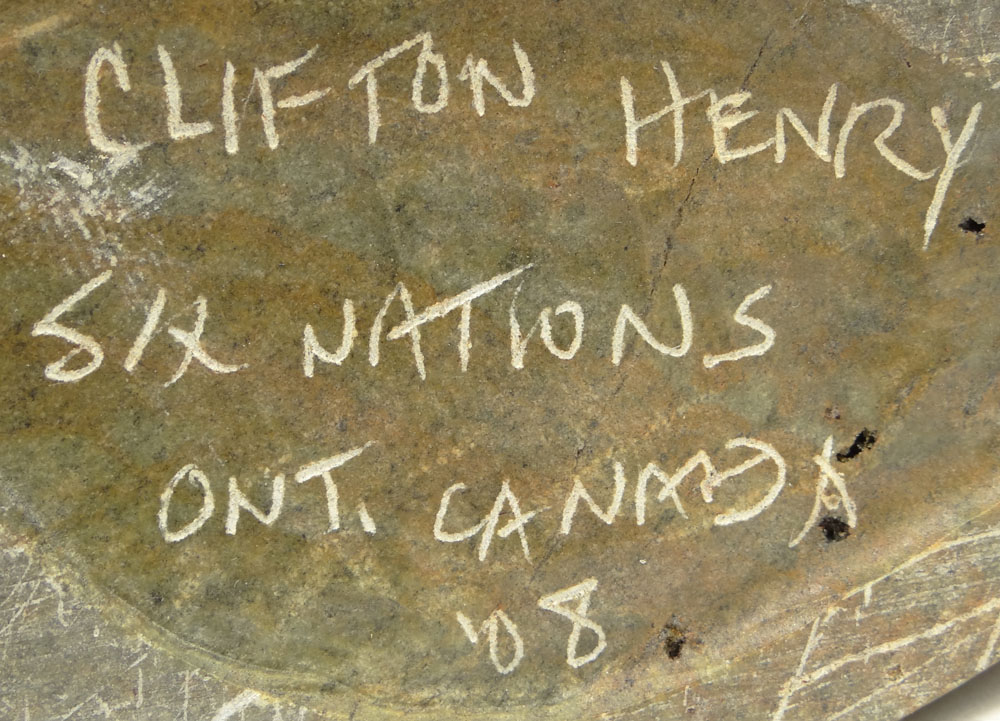 CLIFTON HENRY
SIX NATIONS
ONT. CANADA
'08